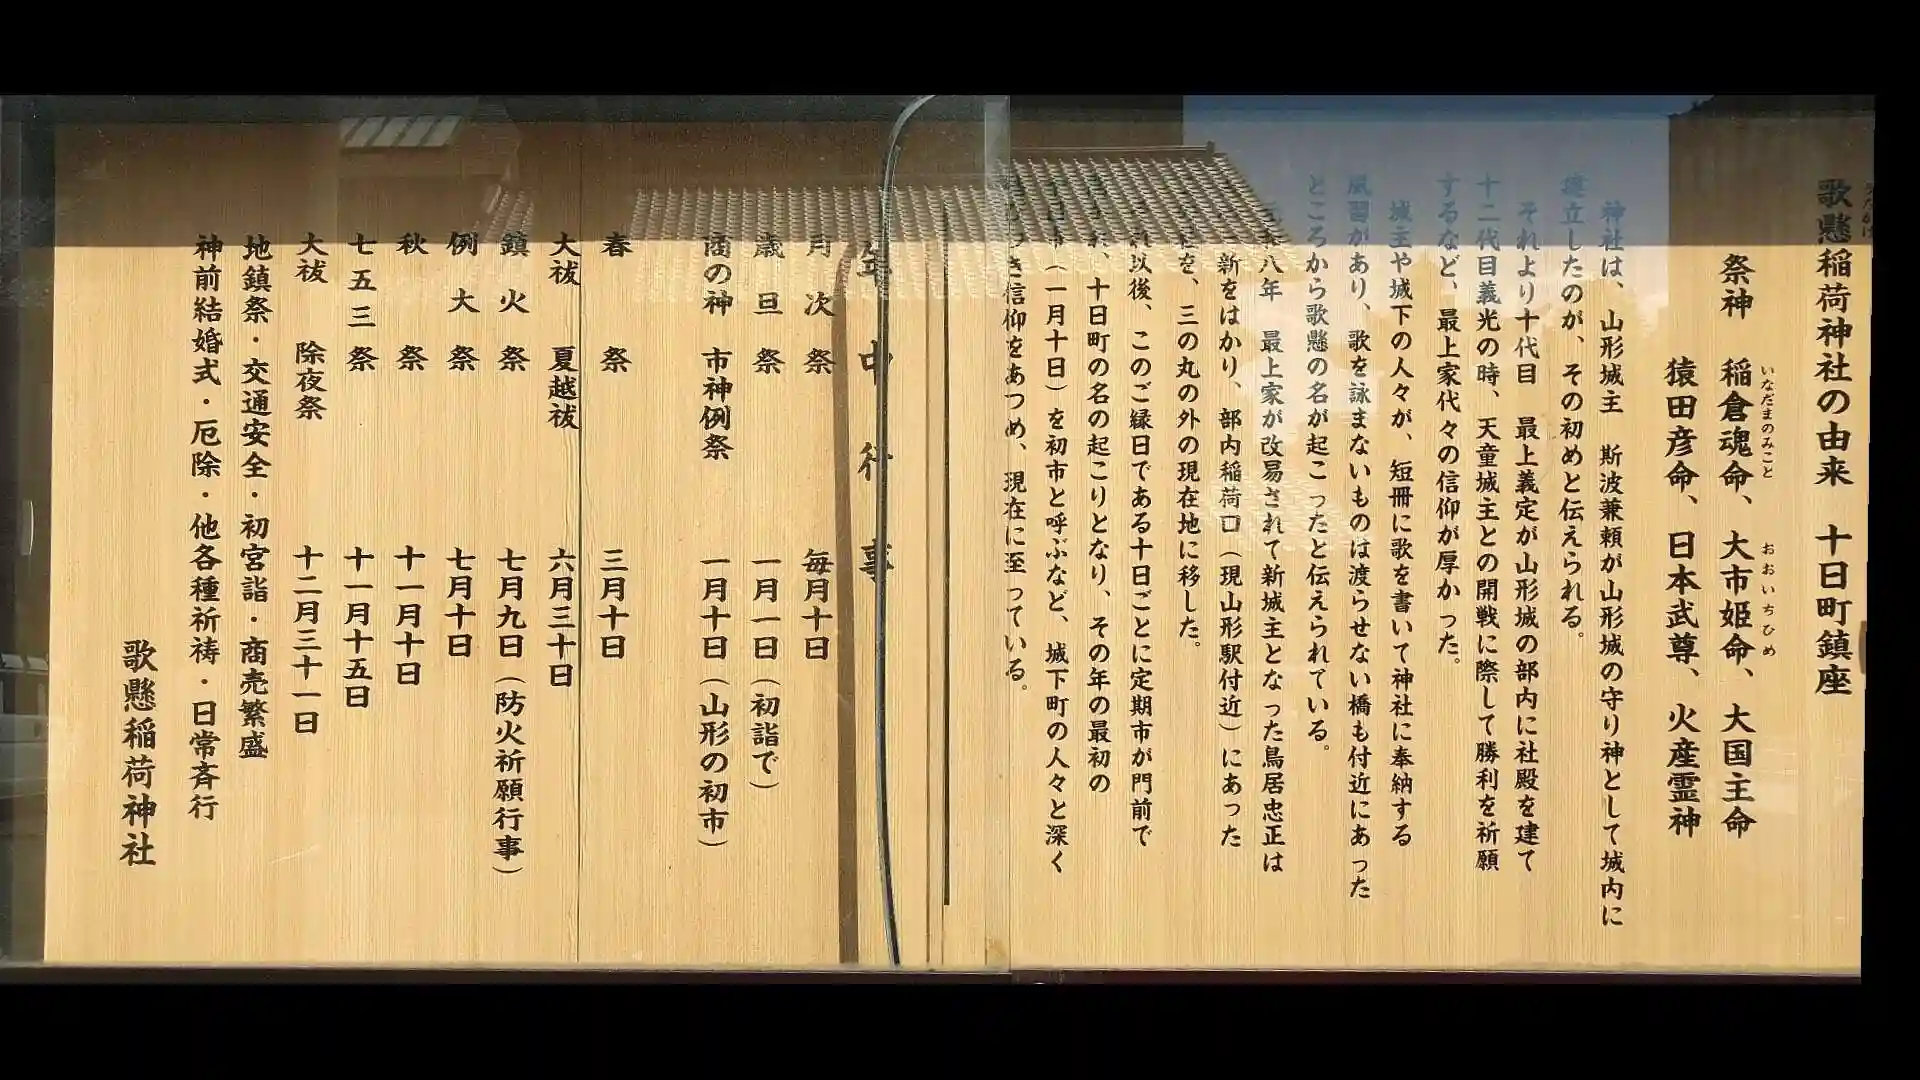 歌懸稲荷神社の由来　十日町鎮座
祭神　稲倉魂命、大市姫命、大国主命
いなだまのみこと　おおいちひめ
猿田彦命、日本武尊、火産霊神
神社は、山形城主　斯波兼頼が山形城の守り神として城内に
建立したのが、その初めと伝えられる。
それより十代目　最上義定が山形城の部内に社殿を建て
十二代目義光の時、天童城主との開戦に際して勝利を祈願
するなど、最上家代々の信仰が厚かった。
城主や城下の人々が、短冊に歌を書いて神社に奉納する
風習があり、歌を詠まないものは渡らせない橋も付近にあった
ところから歌懸の名が起こったと伝えられている。
八年　最上家が改易されて新城主となった鳥居忠正は
新をはかり、部内稲荷口（現山形駅付近）にあった
を、三の丸の外の現在地に移した。
以後、このご縁日である十日ごとに定期市が門前で
、十日町の名の起こりとなり、その年の最初の
（一月十日）を初市と呼ぶなど、城下町の人々と深く
信仰をあつめ、現在に至っている。
年中行事
月次祭　毎月十日
歳旦祭　一月一日（初詣で）
商の神　市神例祭　一月十日（山形の初市）
春祭　三月十日
大祓　夏越祓　六月三十日
鎮火祭　七月九日（防火祈願行事）
例大祭　七月十日
秋祭　十一月十日
七五三祭　十一月十五日
大祓　除夜祭　十二月三十一日
地鎮祭・交通安全・初宮詣・商売繁盛
神前結婚式・厄除・他各種祈祷・日常斉行
歌懸稲荷神社